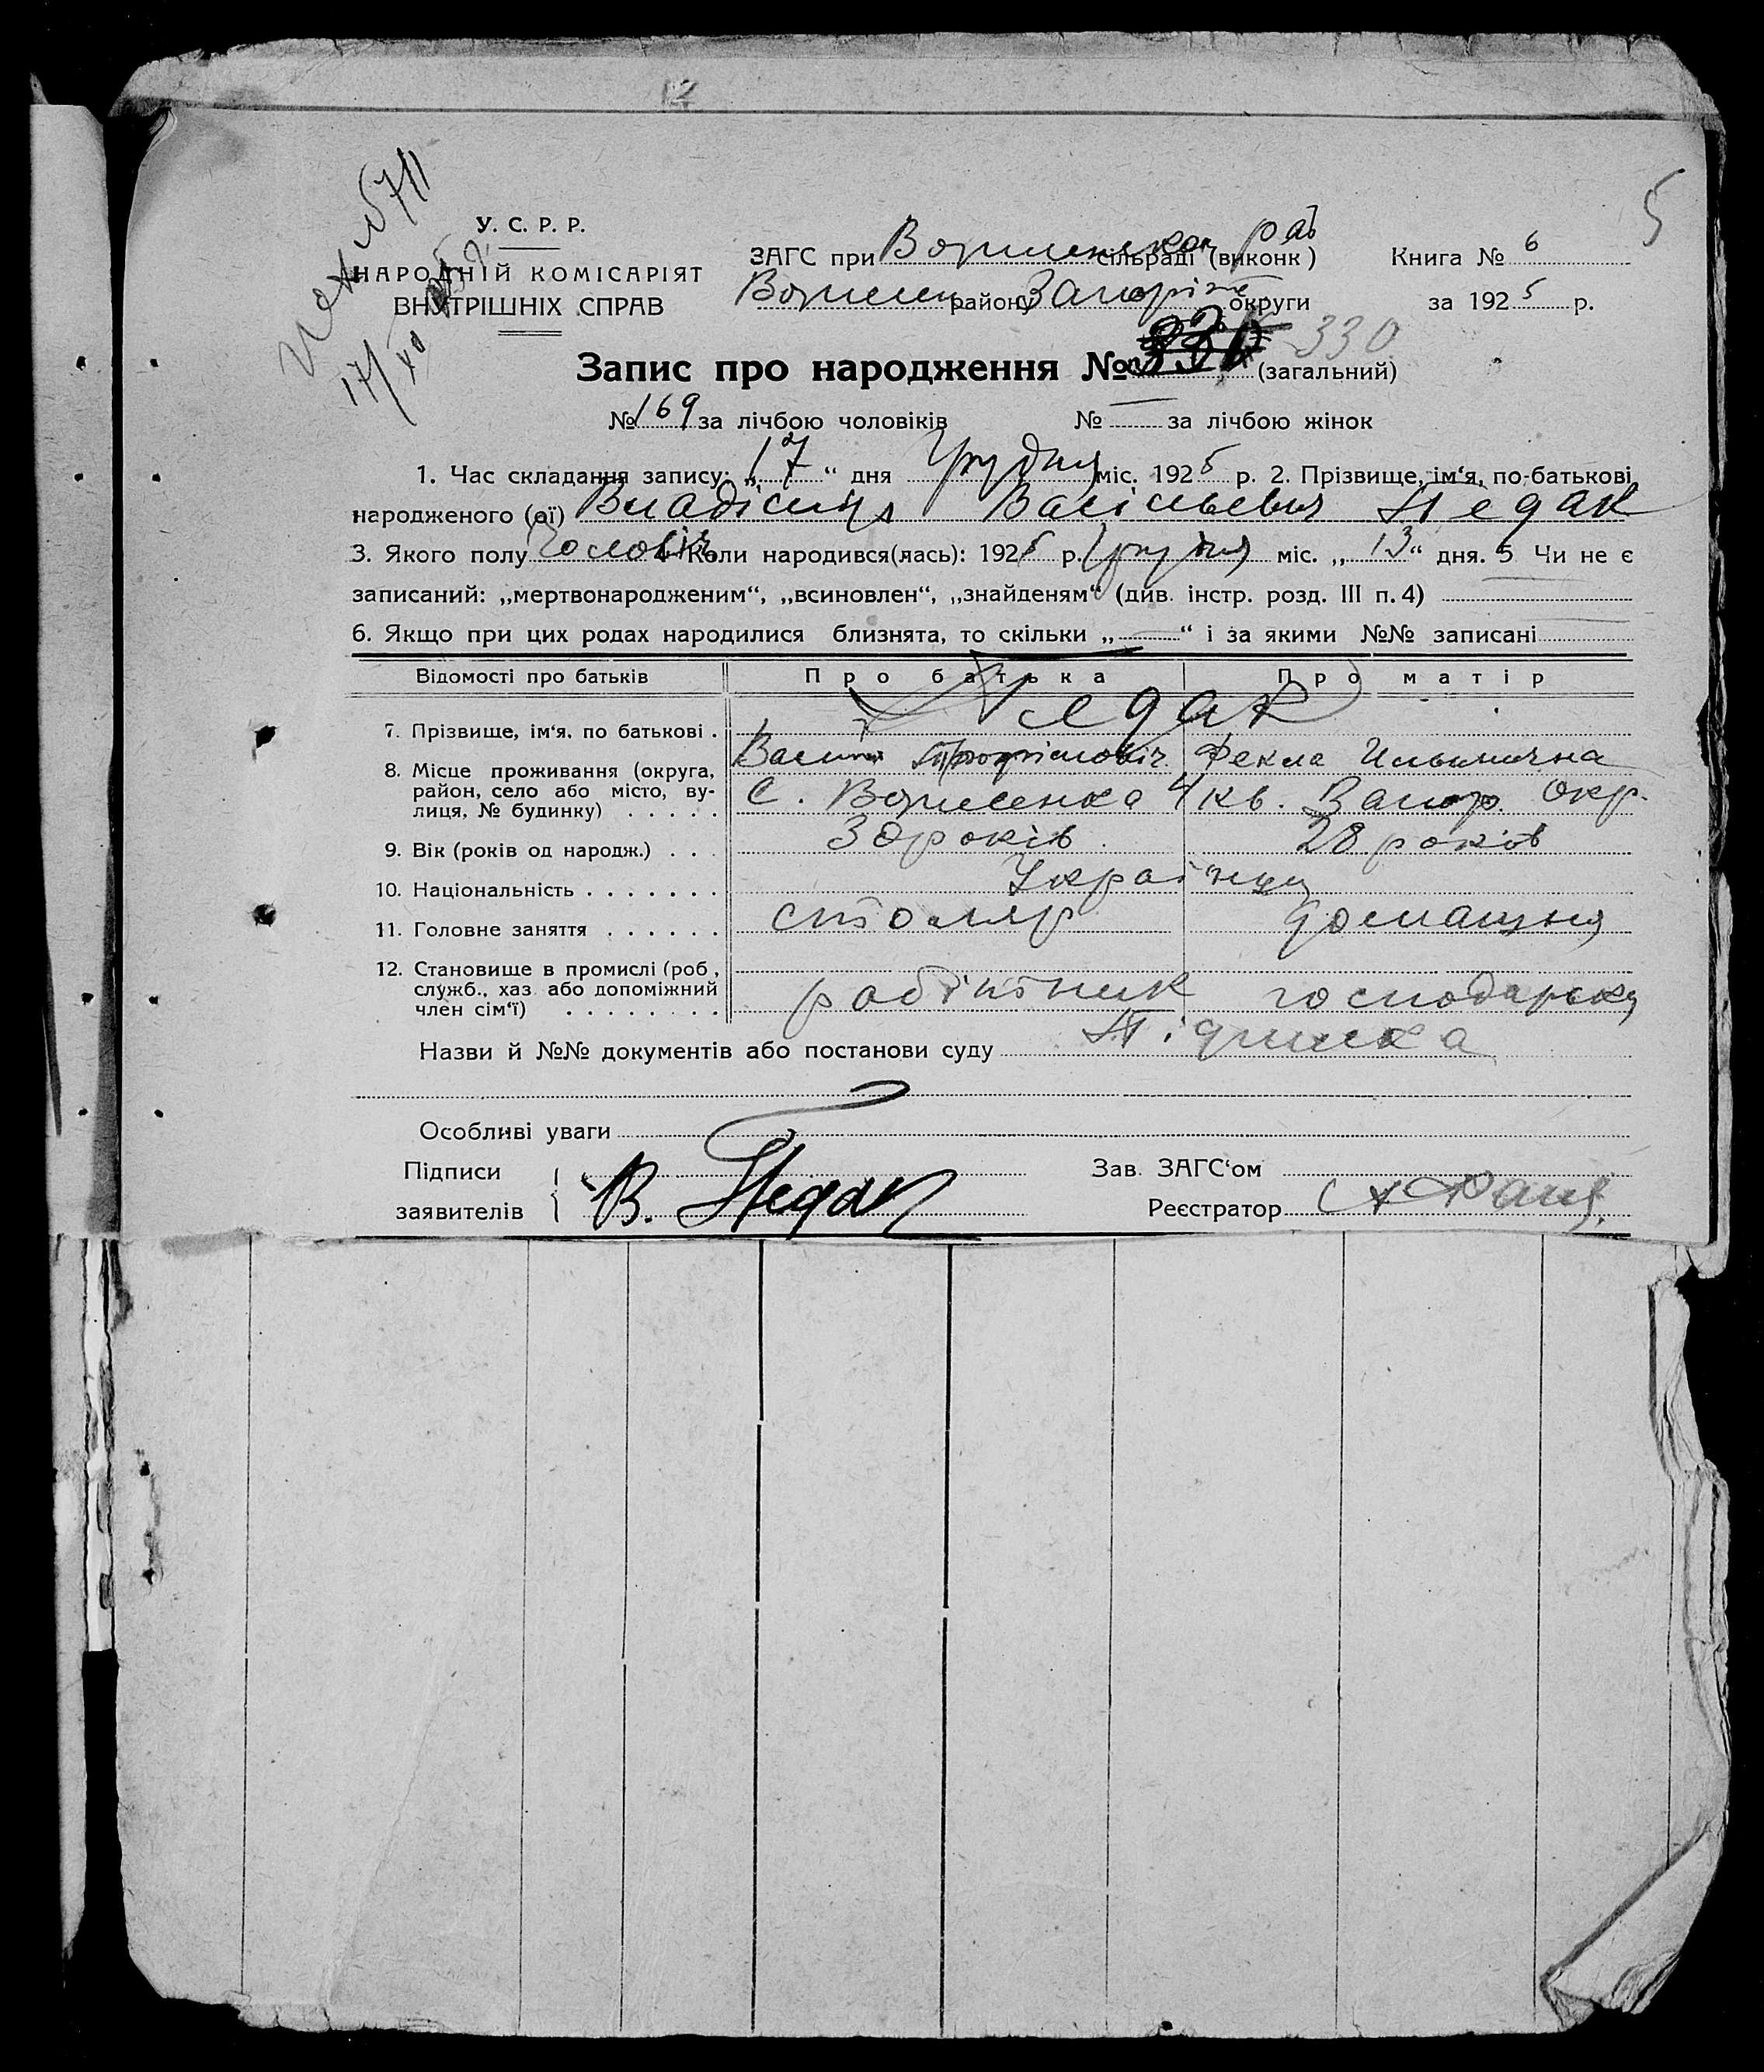 5
У. С. Р. Р.
НАРОДНІЙ КОМІСАРІЯТ
ВНУТРІШНІХ СПРАВ
ЗАГС при сільраді (виконк)
району Запоріж округи
Книга № 6
за 1925 р.
Запис про народження № 330 (загальний)
№ 169 за лічбою чоловіків № — за лічбою жінок
1. Час складання запису: „17“ дня Грудня міс. 1925 р. 2. Прізвище, ім‘я, по-батькові
народженого (ої) Владімір Васільевич Педак
3. Якого полу Чоловік 4 Коли народився(лась): 1925 р. Грудня міс. „13“ дня. 5 Чи не є
записаний: „мертвонародженим“, „всиновлен“, „знайденям“ (див. інстр. розд. III п. 4)
6. Якщо при цих родах народилися близнята, то скільки „—“ і за якими №№ записані
Відомості про батьків Про батька Про матір
7. Прізвище, ім‘я, по батькові . Педак
Василій Трофімовіч Фекла Ильинична
8. Місце проживання (округа,
район, село або місто, ву-
лиця, № будинку) . . . . . С. Вознесенка 4 кв. Запор. Окр.
9. Вік (років од народж.) . . . 30 років 28 років
10. Національність . . . . . . . Українци
11. Головне заняття . . . . . . столяр домашня
12. Становище в промислі (роб.,
служб., хаз або допоміжний
член сім‘ї) . . . . . . . . робітник господарка
Назви й №№ документів або постанови суду Підписка
Особливі уваги
Підписи
заявителів В. Педак
Зав. ЗАГС‘ом
Реєстратор